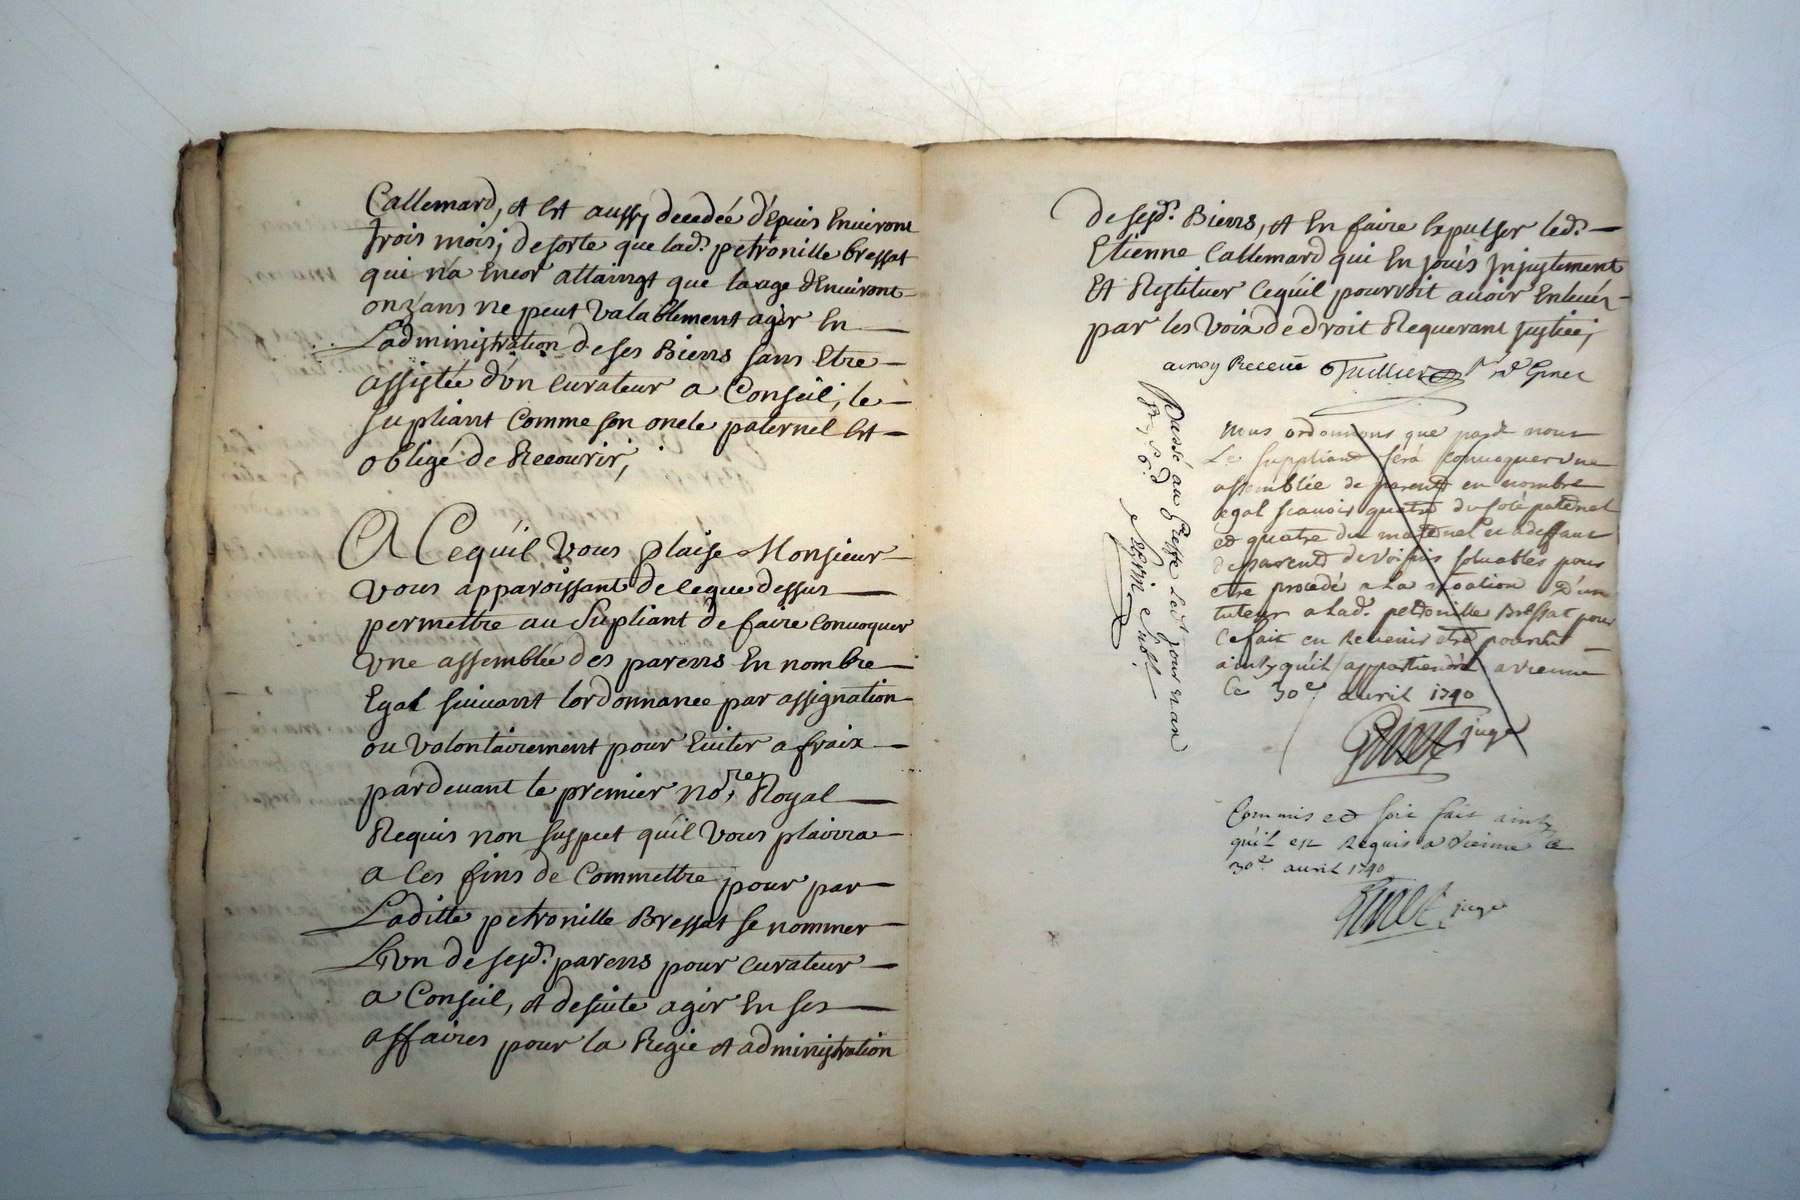 Callemard, et est aussy decedée d'epuis Environt
trois mois; de sorte que lad.e petronille bressat
qui n'a Encor attaingt que laage d'Environt
onzans ne peut valablement agir En
L'administration de ses Biens sans Etre
assistée d'un Curateur a Conseil, le
supliant Comme son oncle paternel Est
obligé de Recourir;
A Cequ'il vous plaise Monsieur
vous apparoissant de ceque dessus
permettre au supliant de faire Convoquer
une assemblée des parens En nombre
Egal suivant lordonnance par assignation
ou volontairement pour Eviter a fraix
pardevant le premier no.re Royal
Requis non suspect qu'il vous plairra
a Ces fins de Commettre pour par
Laditte petronille Bressat se nommer
L'un de sesd. parens pour Curateur
a Conseil, et de suite agir En ses
affaires pour la Regie et administration
de sesd. Biens, et En faire Expulser led.
Etienne Callemard qui En jouis Injustement
Et Restituer Cequil pourroit avoir Enlevér
par les voix de droit Requerant justice,
ainsy Receue Tuillier
Nous ordonnons que pard nous
Le suppliant séra Convoquer une
assemblée de parent en nombre
egal scavoir quatre du coté paternel
et quatre du maternel et a deffaut
de parent de voisins solvables pour
etre procedé a la D'un
tuteur a lad. petronille Bressat pour
Ce fait en Revenir etre pourvu
ainsy qu'il appartiendra a vienne
Ce 30e avril 1790
Ginet juge
Commis et soit fait ainsy
qu'il est Requis a vienne Ce
30e avril 1790
Ginet juge
Passé au Greffe led. jour et an